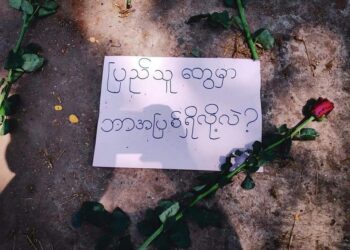 ပြည်သူ တွေမှာ
ဘာအပြစ်ရှိလို့လဲ?